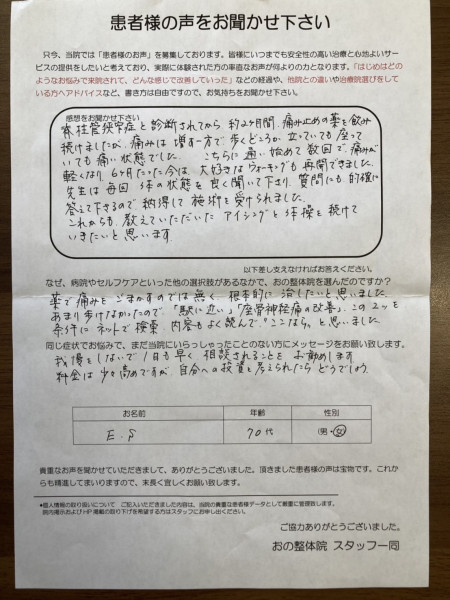 患者様の声をお聞かせ下さい
只今、当院では「患者様のお声」を募集しております。皆様にいつまでも安全性の高い治療と心地よいサービスの提供をしたいと考えており、実際に体験された方の率直なお声が何よりの力となります。「はじめはどのようなお悩みで来院されて、どんな感じで改善していった」などの経過や、他院との違いや治療院選びをしている方へアドバイスなど、書き方は自由ですので、お気持ちをお聞かせ下さい。
感想をお聞かせ下さい
脊柱管狭窄症と診断されてから、約2ヶ月間、痛み止めの薬を飲み
続けましたが、痛みは増す一方で歩くどころか立っていても座って
いても痛い状態でした。こちらに通い始めて数回で、痛みが
軽くなり、6ヶ月たった今は、大好きなウォーキングも再開できました。
先生は毎回、体の状態を良く聞いて下さり、質問にも的確に
答えて下さるので、納得して施術を受けられました。
これからも、教えていただいたアイシングと体操を続けて
いきたいと思います。
以下差し支えなければお答えください。
なぜ、病院やセルフケアといった他の選択肢があるなかで、おの整体院を選んだのですか?
薬で痛みをごまかすのでは無く、根本的に治したいと思いました。
あまり歩けなかったので、「駅に近い」「座骨神経痛の改善」、この2ッを
条件にネットで検索、内容もよく読んで“ここなら”と思いました
同じ症状でお悩みで、まだ当院にいらっしゃったことのない方にメッセージをお願い致します。
我慢をしないで1日も早く相談されることをお勧めします
料金は少々高めですが、自分への投資と考えられたらどうでしょう。
お名前 年齢 性別
E.S 70代 (男・女)
貴重なお声を聞かせていただきまして、ありがとうございました。頂きました患者様の声は宝物です。これからも精進してまいりますので、末長く宜しくお願い致します。
*個人情報の取り扱いについて ご記入いただきました内容は、当院の貴重な患者様データとして厳重に管理致します。
院内掲示およびHP掲載の取り下げを希望する方はスタッフにお申し出ください。
ご協力ありがとうございました。
おの整体院 スタッフ一同